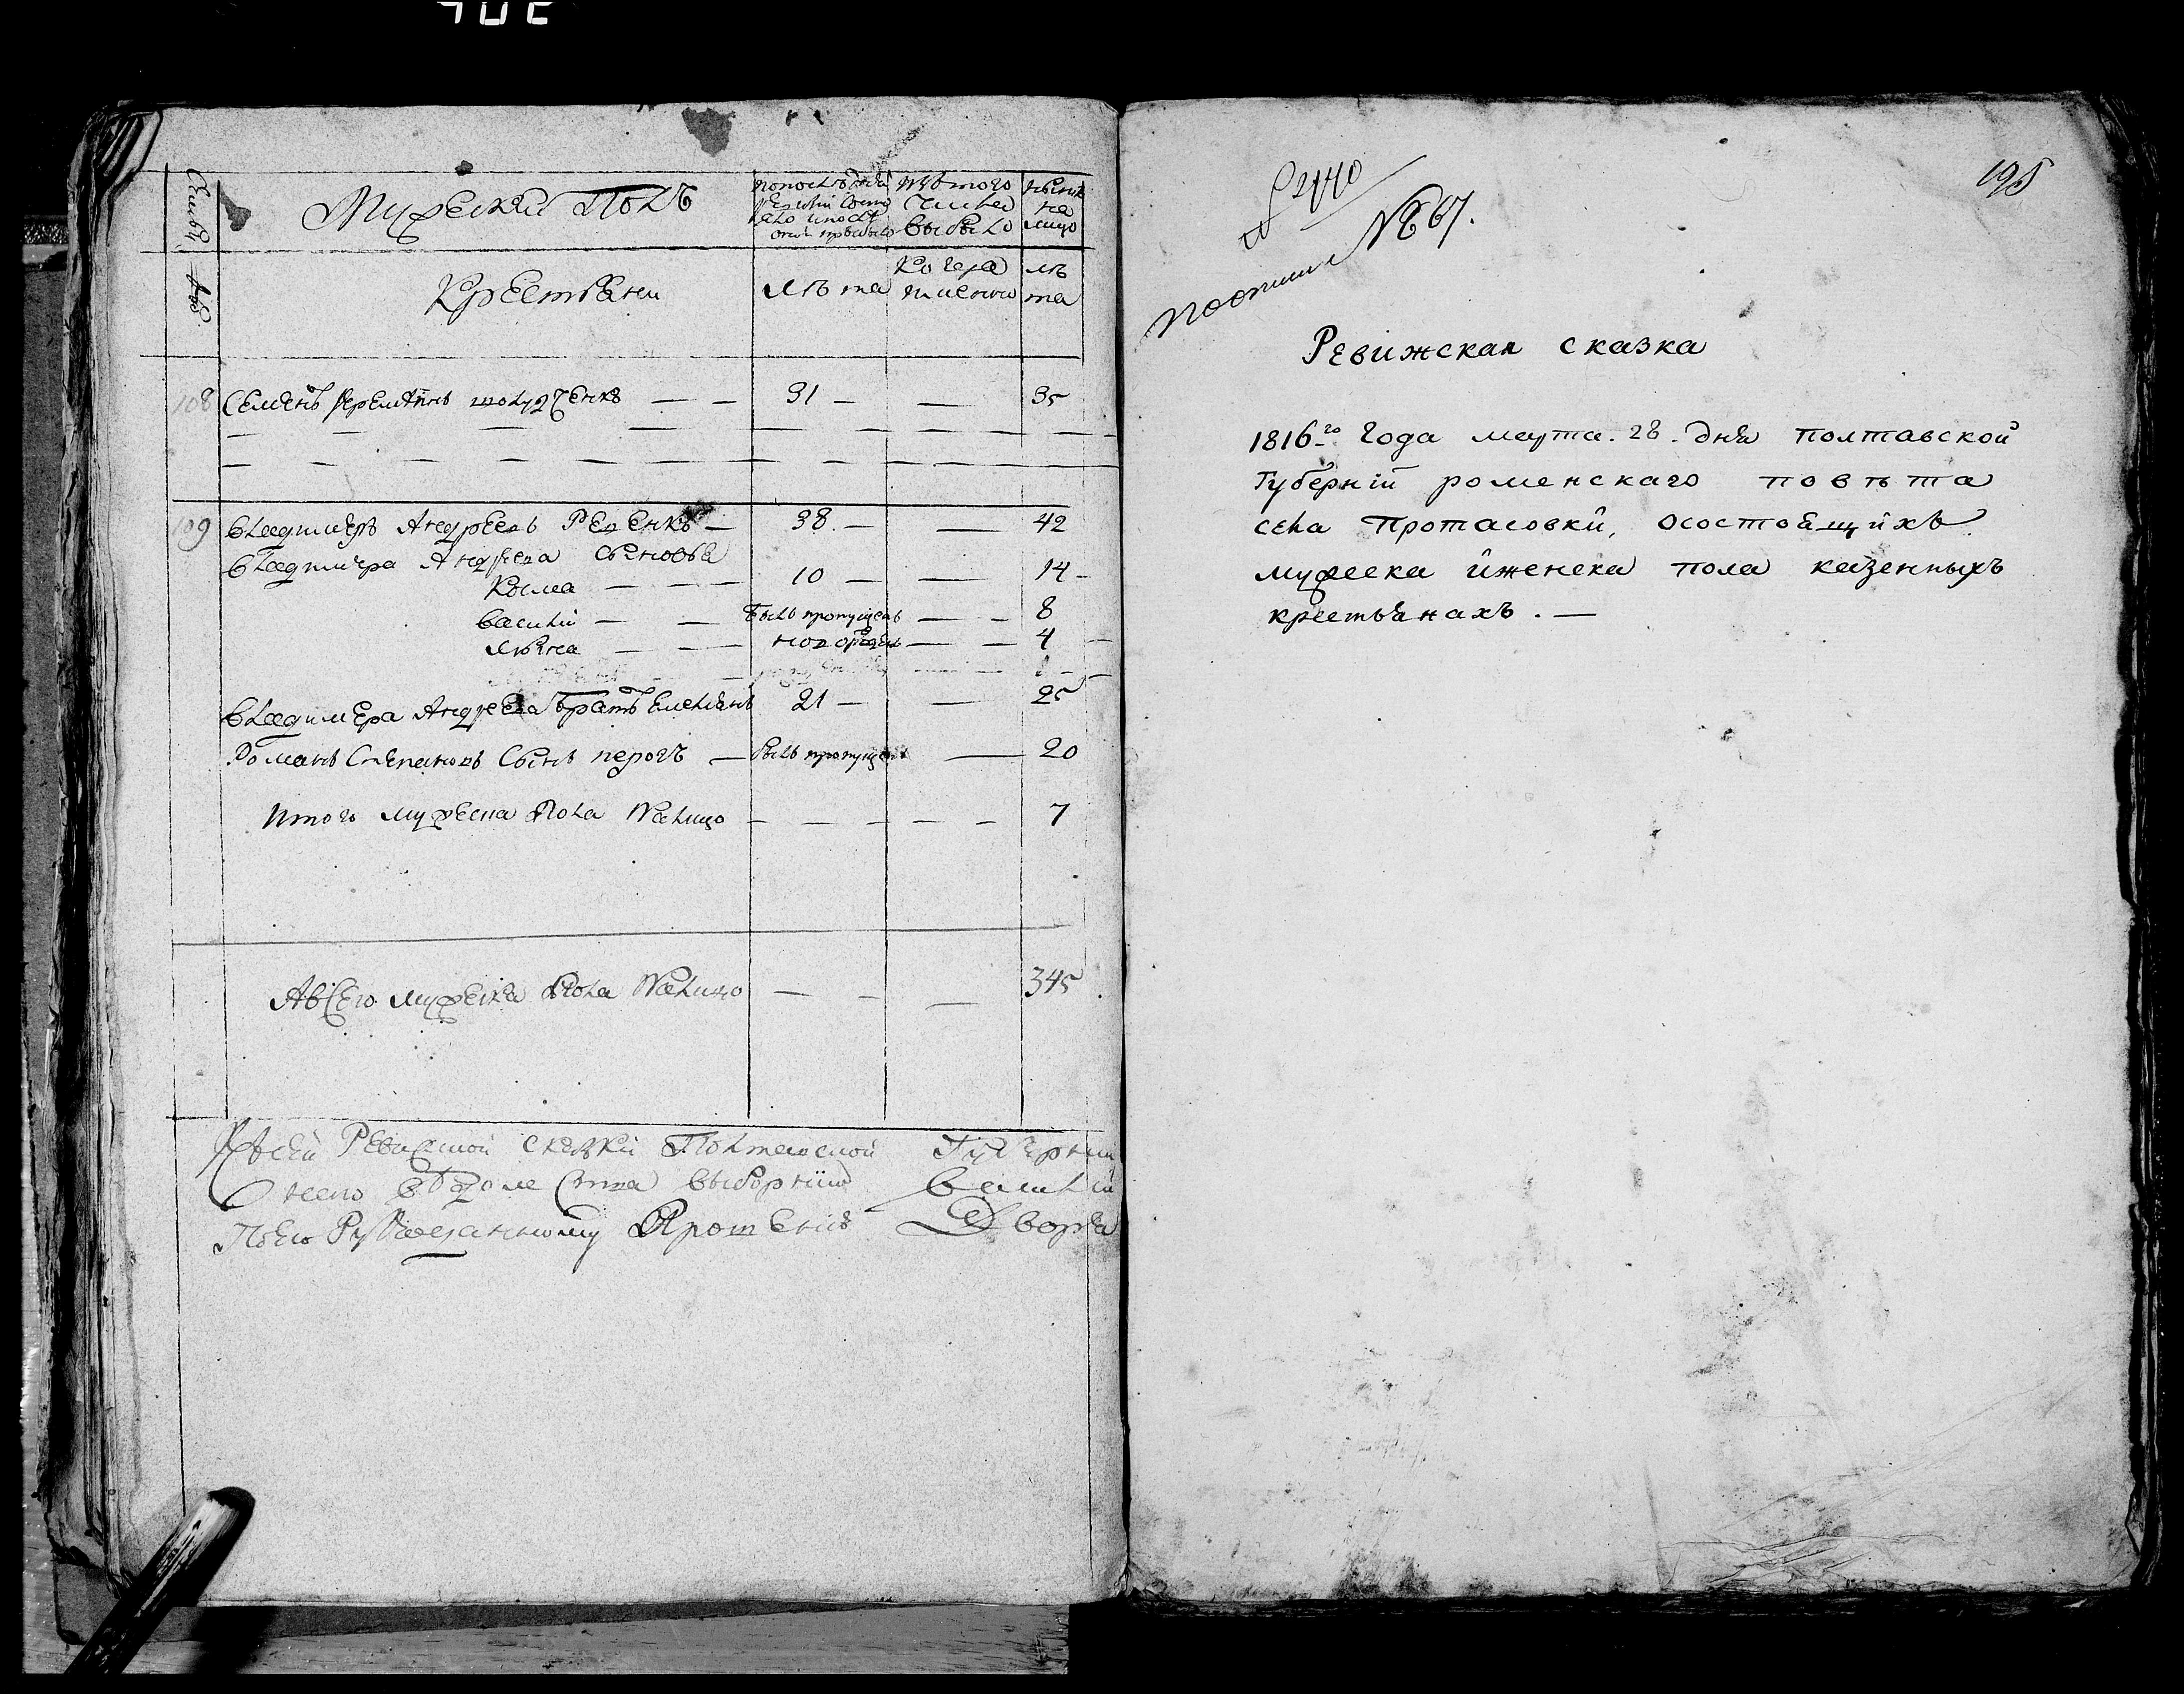 Мужескій Полъ
Крестьяни
по последней ревизіи состояло и после оной прибыло
изъ того числа выбыло
ныне на лицо
лѣта
когда именно
лѣта
108 Семенъ Іереміинъ — — 31 — — 35
109 Владимеръ Андреевъ — 38 — — 42
Владимира Андреева Сыновья
Косма — — — 10 — — 14 —
василій — — былъ пропущенъ — — 8
новорожденъ — — 4
Владимера Андреева братъ Емельянъ 21 — — 25
Романъ Степановъ Сынъ перогъ — былъ пропущенъ — 20
Итого мужеска Пола Налицо — — — — — 7
А всего мужеска Пола Налицо — — — 345
Къ сей Ревизской сказки Полтавской Губерніи
выборній Василій
По его Рукоданному Прошенію
195
№ 67.
Ревижская сказка
1816-го Года марта. 28. дня полтавской
Губерніи роменскаго повѣта
села Протасовки, о состоящихъ
мужеска и женска пола казенныхъ
крестьянахъ. —